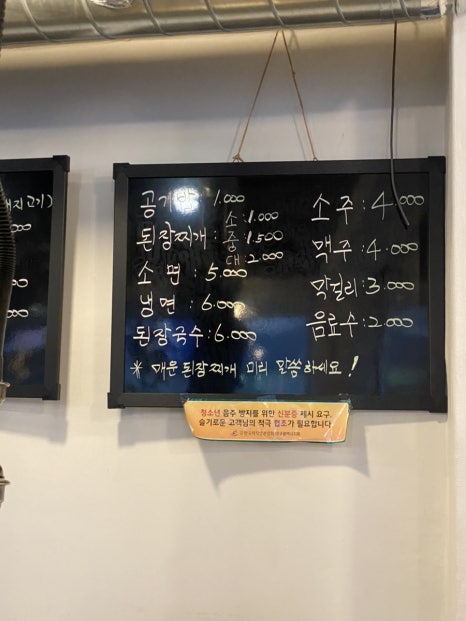 돼지고기)
공기밥 1.000
된장찌개 : 소 : 1.000
중 : 1.500
대 : 2.000
소면 : 5.000
냉면 : 6.000
된장국수 : 6.000
소주 : 4.000
맥주 : 4.000
막걸리 : 3.000
음료수 : 2.000
* 매운된장찌개 미리 말씀하세요!
청소년 음주 방지를 위한 신분증 제시 요구,
슬기로운 고객님의 적극 협조가 필요합니다.